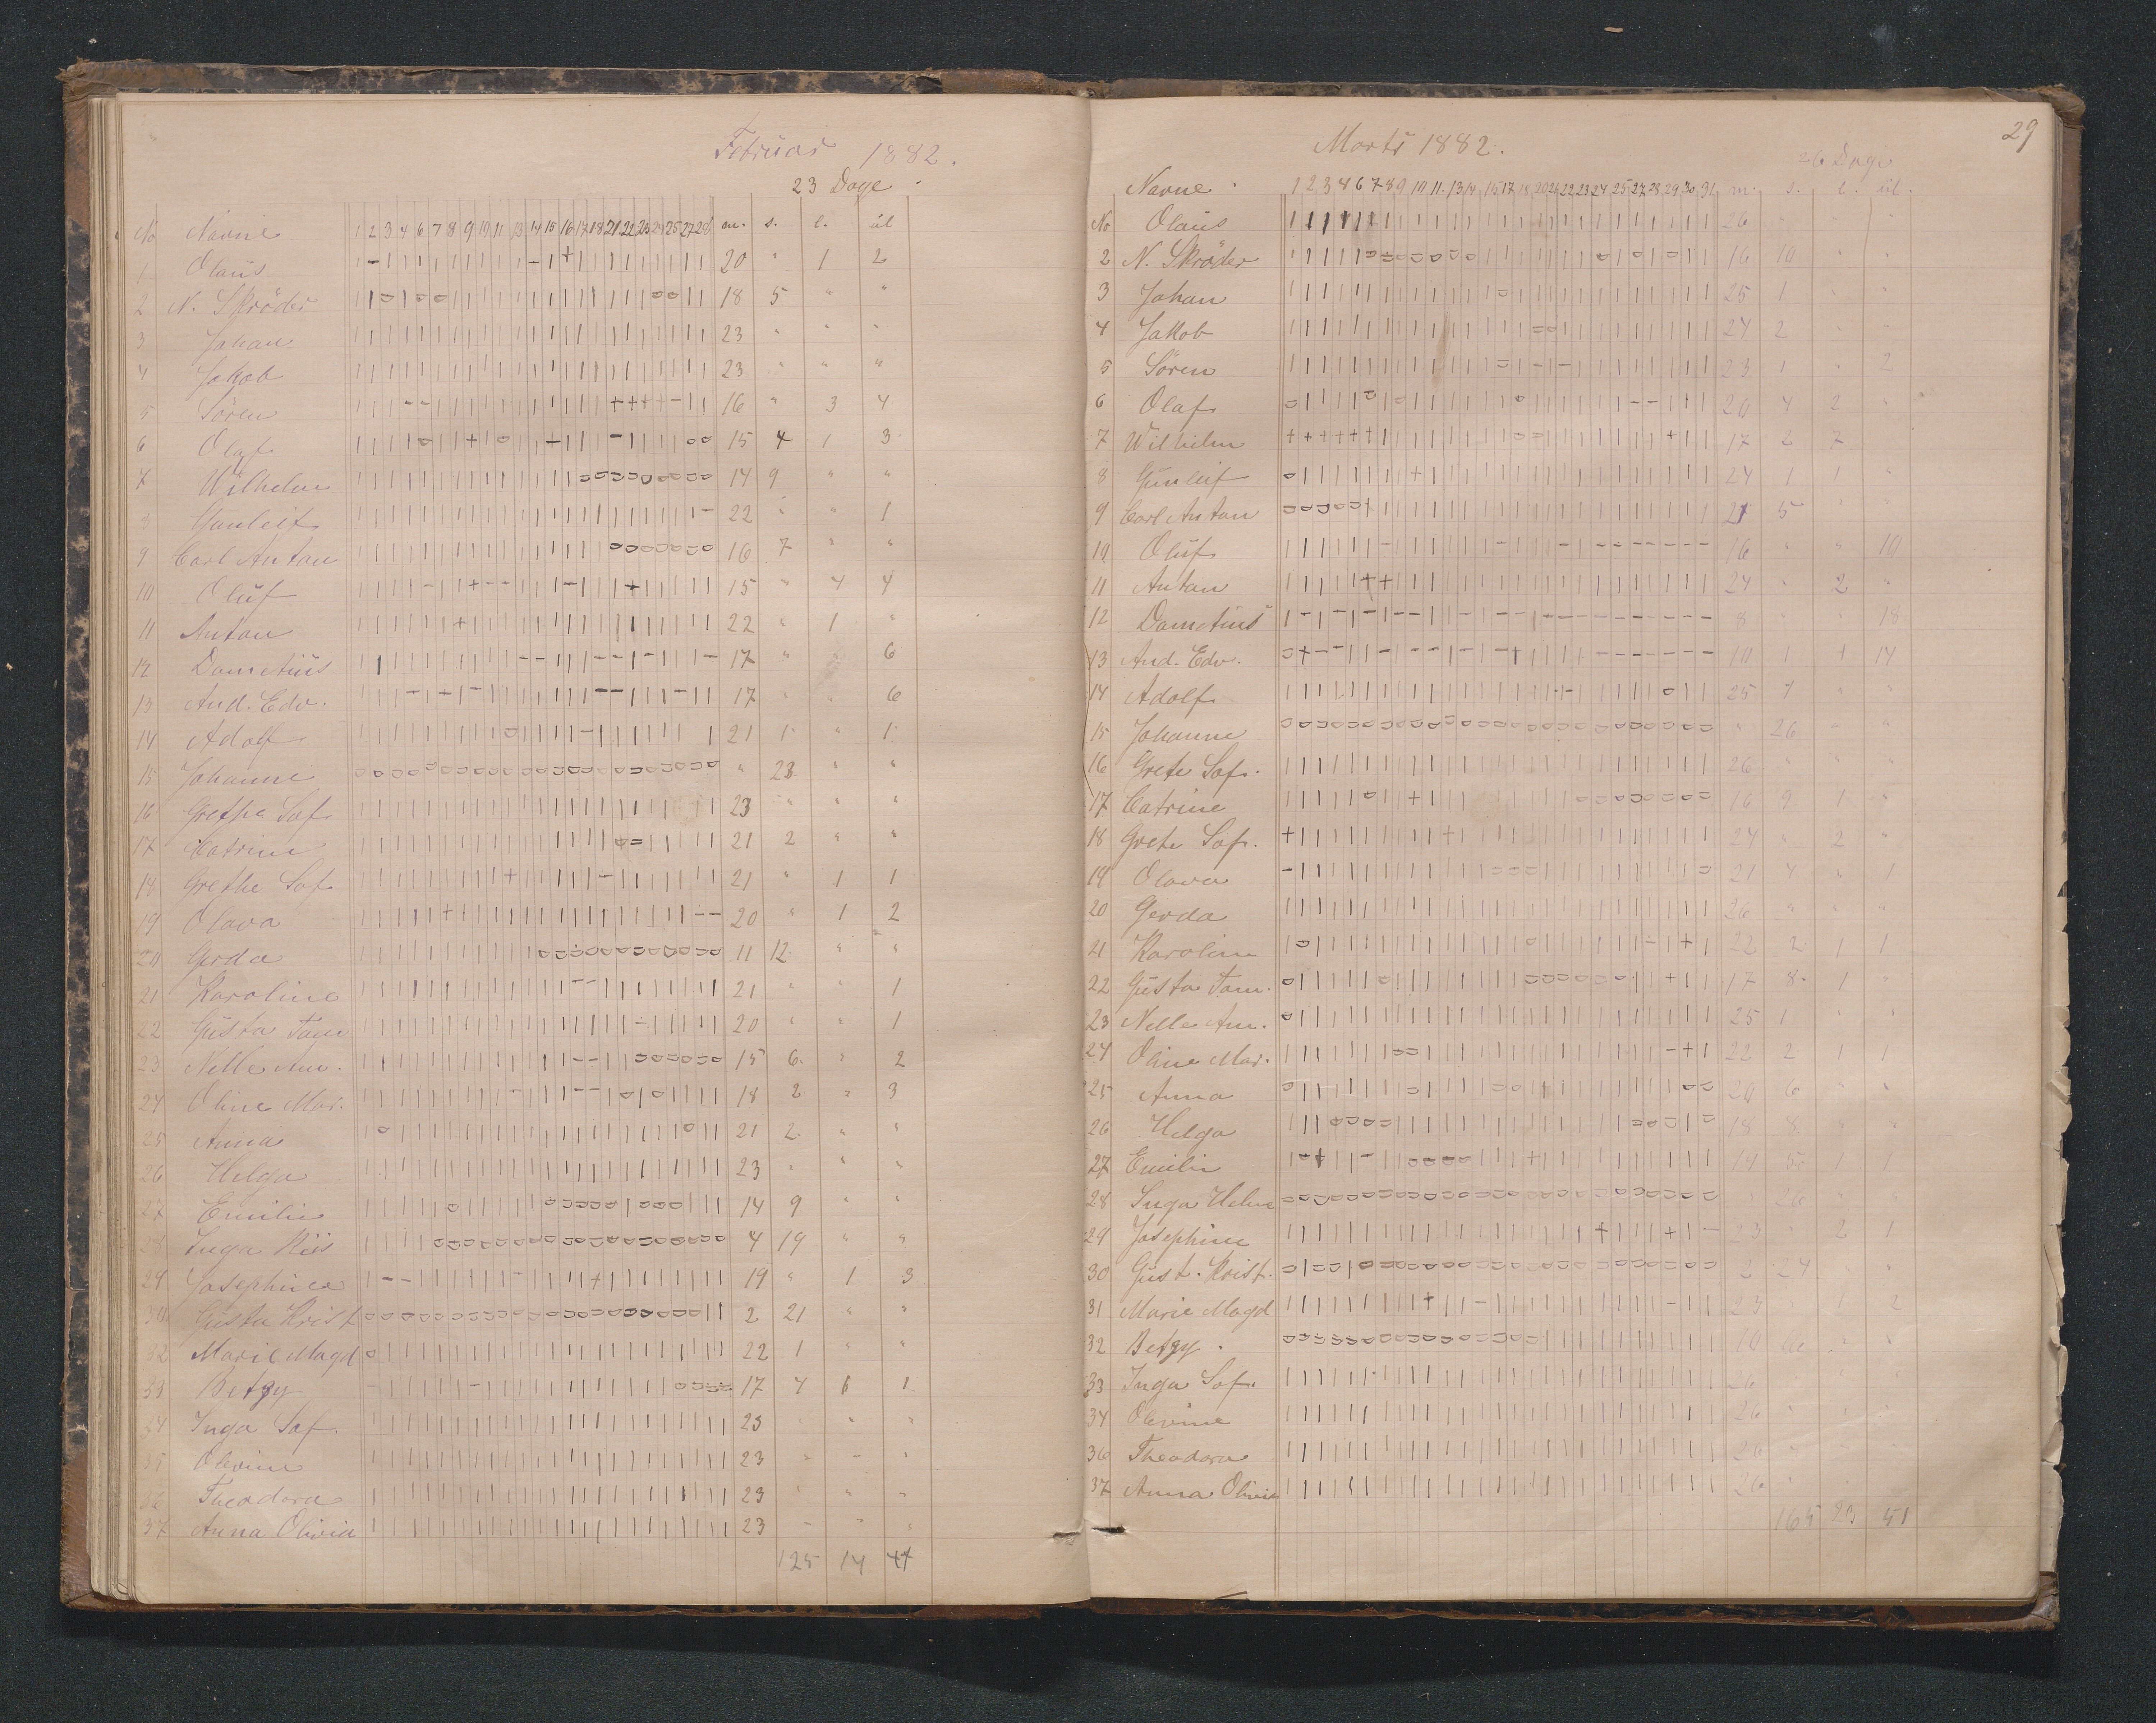 Februar 1882.
23 Dage
No Navne 1 2 3 4 6 7 8 9 10 11 13 14 15 16 17 18 21 22 23 24 25 27 28 m. s. l. ul
1 Olaus 20 " 1 2
2 N. Skröder 18 5 " "
3 Johan 23 " " "
4 Jakob 23 " " "
5 Sören 16 " 3 4
6 Olaf 15 4 1 3
7 Wilhelm 14 9 " "
8 Gunleif 22 " " 1
9 Carl Anton 16 7 " "
10 Oluf 15 " 4 4
11 Anton 22 " 1 "
12 Dametius 17 " " 6
13 And. Edv. 17 " " 6
14 Adolf 21 1 " 1
15 Johanne " 23 " "
16 Grethe Sof. 23 " " "
17 Catrine 21 2 " "
18 Grethe Sof. 21 " 1 1
19 Olava 20 " 1 2
20 Gerda 11 12 " "
21 Karoline 21 " " 1
22 Gusta Tam 20 " " 1
23 Nelle Am. 15 6 " 2
24 Oline Mar. 18 2 " 3
25 Anna 21 2 " "
26 Helga 23 " " "
27 Emilie 14 9 " "
28 Inga Riis 4 19 " "
29 Josephine 19 " 1 3
30 Gusta Krist 2 21 " "
32 Marie Magd 22 1 " "
33 Betzy 17 4 1
34 Inga Sof. 23 " " "
35 Olevine 23 " " "
36 Theodora 23 " " "
37 Anna Olivia 23 " " "
125 14 44
29
Marts 1882.
26 Dage
Navne 1 2 3 4 6 7 8 9 10 11 13 14 15 17 18 20 21 22 23 24 25 27 28 29 30 31 m. s. l. ul.
No Olaus 26 " " "
2 N. Skröder 16 10 " "
3 Johan 25 1 " "
4 Jakob 24 2 "
5 Sören 23 1 " 2
6 Olaf 20 4 2 "
7 Wilhelm 17 2 7
8 Gunleif 24 1 1 "
9 Carl Anton 21 5 " "
10 Oluf 16 " " 10
11 Anton 24 " 2 "
12 Dametius 8 " " 18
13 And. Edv. 10 1 1 14
14 Adolf 25 1 " "
15 Johanne " 26 " "
16 Grete Sof. 26 " " "
17 Catrine 16 9 1 "
18 Grete Sof. 24 " 2 "
19 Olava 21 4 " 1
20 Gerda 26 " " "
21 Karoline 22 2 1 1
22 Gusta Tam. 17 8 1 "
23 Nelle Am. 25 1 " "
24 Oline Mar. 22 2 1 1
25 Anna 20 6 " "
26 Helga 18 8 " "
27 Emilie 19 5
28 Inga Helene 26 " "
29 Josephine 23 " 2 1
30 Gust. Krist. 2 24 " "
31 Marie Magd 23 1 2
32 Betzy. 10
33 Inga Sof. 26 " "
34 Olevine 26 " " "
36 Theodora 26 "
37 Anna Olivia 26 "
165 23 51